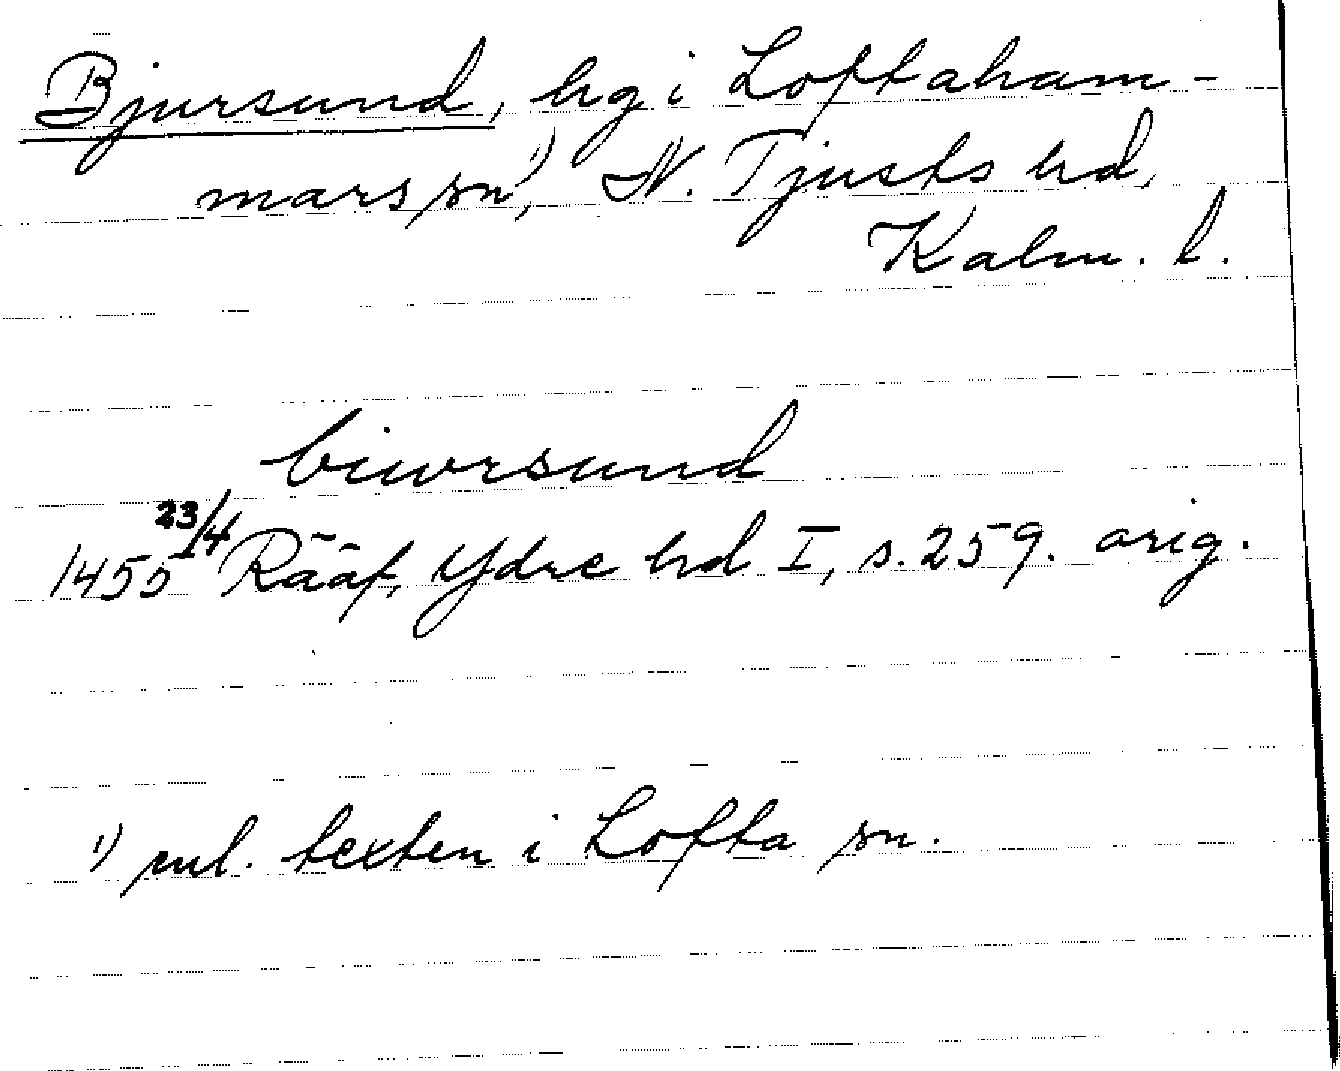 Bjursund, hg i Loftaham-
mars sn¹⁾, N. Tjusts hd,
Kalm. l.
biwrsund
1455 23/4 Rääf, Ydre hd I, s. 259. orig.
¹⁾ enl. texten i Lofta sn.